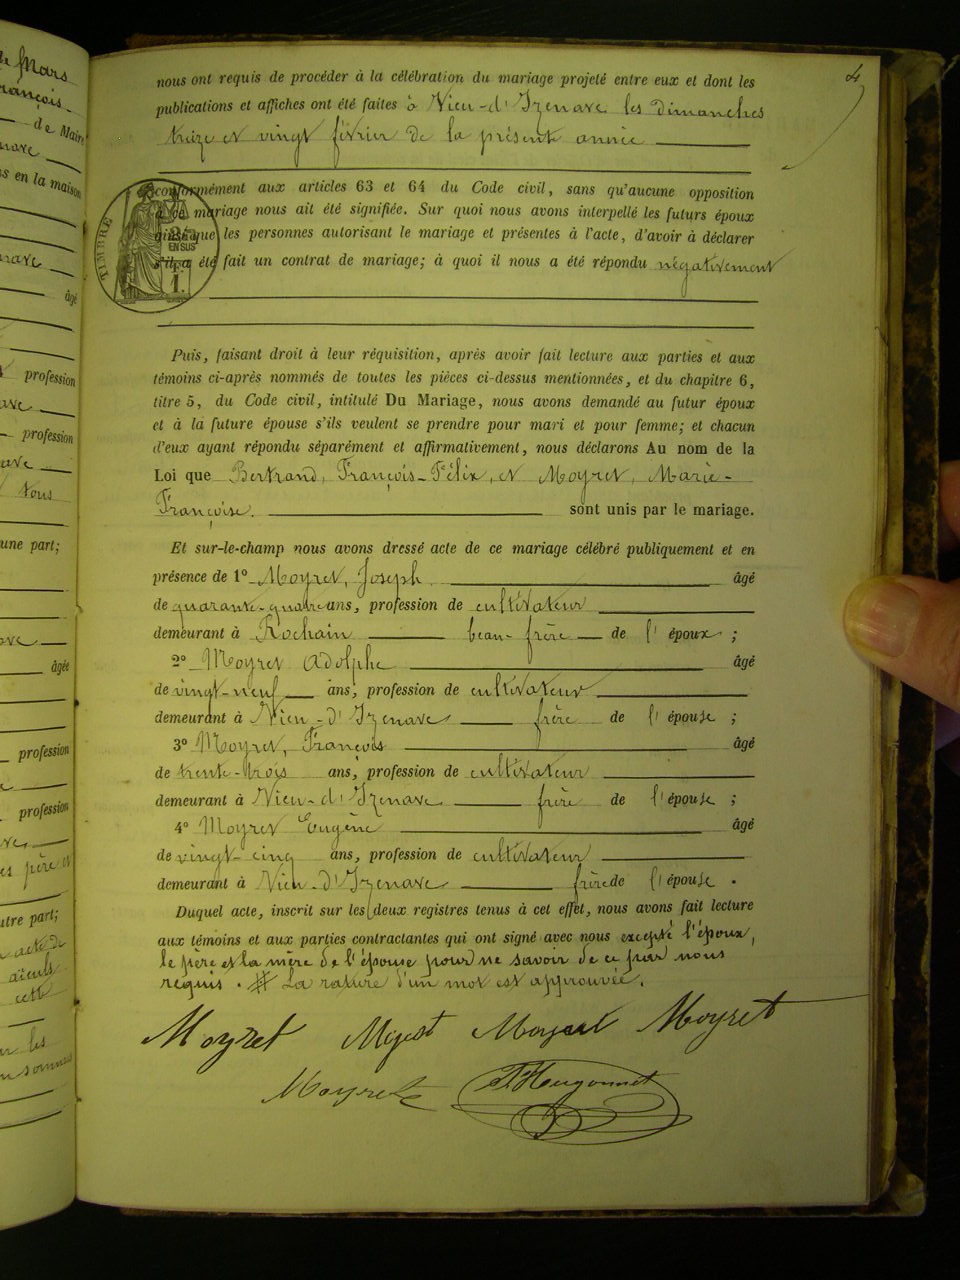 4
nous ont requis de procéder à la célébration du mariage projeté entre eux et dont les
publications et affiches ont été faites à Vieu-d'Izenave les dimanches
treize et vingt février de la présente année
conformément aux articles 63 et 64 du Code civil, sans qu'aucune opposition
à ce mariage nous ait été signifiée. Sur quoi nous avons interpellé les futurs époux
ainsi que les personnes autorisant le mariage et présentes à l'acte, d'avoir à déclarer
s'il a été fait un contrat de mariage; à quoi il nous a été répondu négativement
TIMBRE
EN SUS
Puis, faisant droit à leur réquisition, après avoir fait lecture aux parties et aux
témoins ci-après nommés de toutes les pièces ci-dessus mentionnées, et du chapitre 6,
titre 5, du Code civil, intitulé Du Mariage, nous avons demandé au futur époux
et à la future épouse s'ils veulent se prendre pour mari et pour femme; et chacun
d'eux ayant répondu séparément et affirmativement, nous déclarons Au nom de la
Loi que Bertrand, François-Félix, et Moyret, Marie-
Françoise. sont unis par le mariage.
Et sur-le-champ nous avons dressé acte de ce mariage célébré publiquement et en
présence de 1° Moyret, Joseph âgé
de quarante-quatre ans, profession de cultivateur
demeurant à Rochain beau-frère de l'époux ;
2° Moyret Adolphe âgé
de vingt-neuf ans, profession de cultivateur
demeurant à Vieu-d'Izenave frère de l'épouse ;
3° Moyret, François âgé
de trente-trois ans, profession de cultivateur
demeurant à Vieu-d'Izenave frère de l'épouse ;
4° Moyret Eugène âgé
de vingt-cinq ans, profession de cultivateur
demeurant à Vieu-d'Izenave frère de l'épouse .
Duquel acte, inscrit sur les deux registres tenus à cet effet, nous avons fait lecture
aux témoins et aux parties contractantes qui ont signé avec nous excepté l'époux,
le père et la mère de l'épouse pour ne savoir de ce par nous
requis. # La rature d'un mot est approuvée.
Moyret Moyret Moyret
Moyret Hugonnet